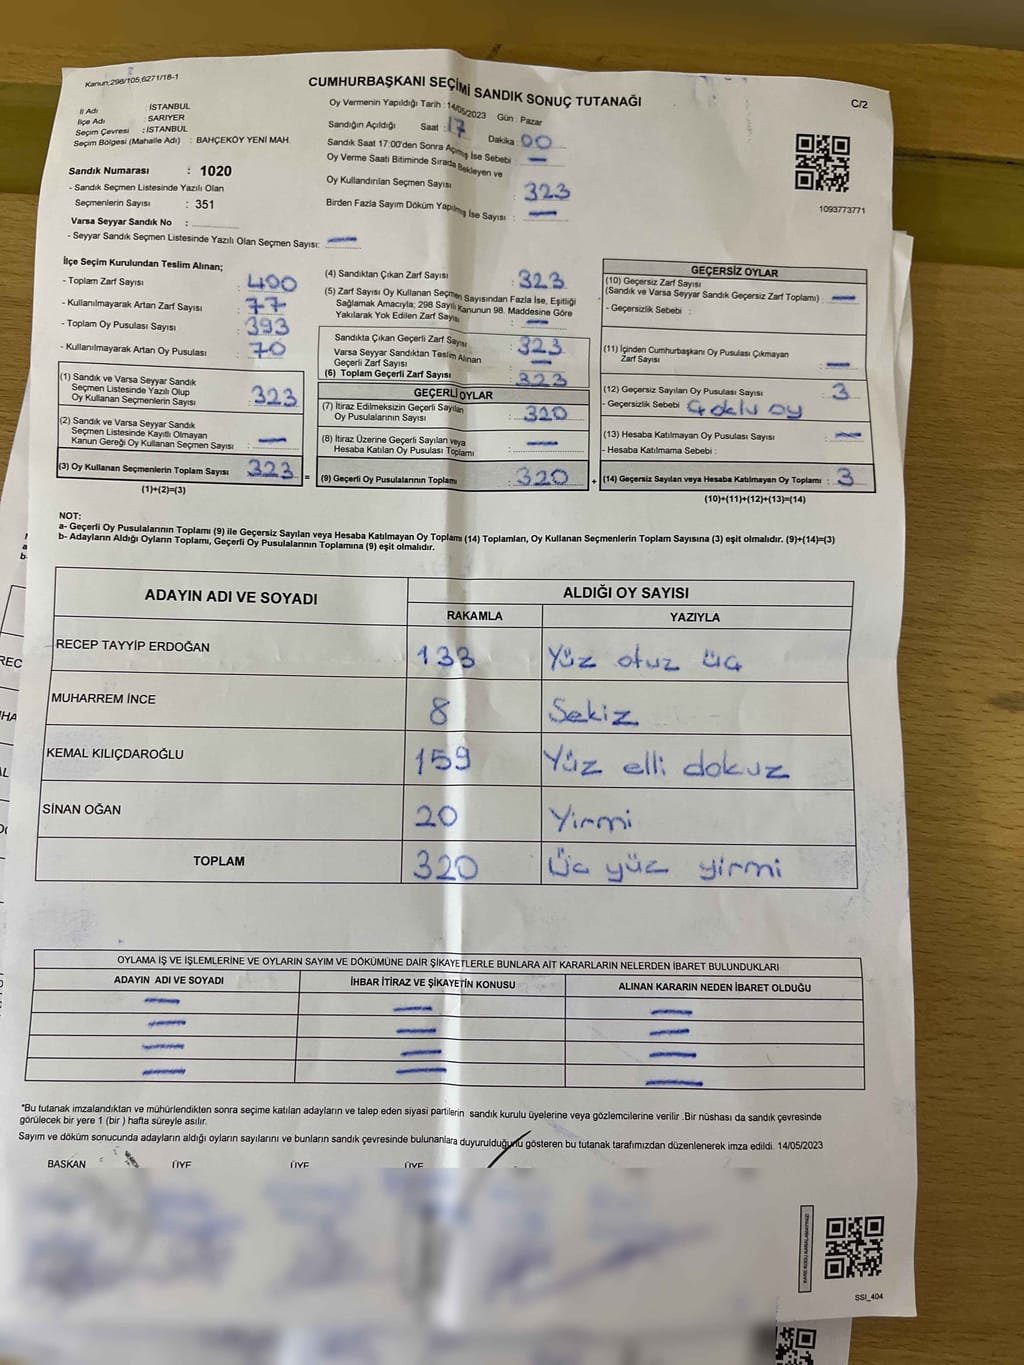 Kanun:298/105,6271/18-1
CUMHURBAŞKANI SEÇİMİ SANDIK SONUÇ TUTANAĞI
C/2
İl Adı : İSTANBUL
İlçe Adı : SARIYER
Seçim Çevresi : İSTANBUL
Seçim Bölgesi (Mahalle Adı) : BAHÇEKÖY YENİ MAH.
Sandık Numarası : 1020
- Sandık Seçmen Listesinde Yazılı Olan
Seçmenlerin Sayısı : 351
Varsa Seyyar Sandık No :
- Seyyar Sandık Seçmen Listesinde Yazılı Olan Seçmen Sayısı: —
Oy Vermenin Yapıldığı Tarih : 14/05/2023 Gün : Pazar
Sandığın Açıldığı Saat : 17 Dakika : 00
Sandık Saat 17:00'den Sonra Açılmış İse Sebebi : —
Oy Verme Saati Bitiminde Sırada Bekleyen ve
Oy Kullandırılan Seçmen Sayısı : 323
Birden Fazla Sayım Döküm Yapılmış İse Sayısı : —
1093773771
İlçe Seçim Kurulundan Teslim Alınan;
- Toplam Zarf Sayısı : 400
- Kullanılmayarak Artan Zarf Sayısı : 77
- Toplam Oy Pusulası Sayısı : 393
- Kullanılmayarak Artan Oy Pusulası : 70
(1) Sandık ve Varsa Seyyar Sandık
Seçmen Listesinde Yazılı Olup
Oy Kullanan Seçmenlerin Sayısı : 323
(2) Sandık ve Varsa Seyyar Sandık
Seçmen Listesinde Kayıtlı Olmayan
Kanun Gereği Oy Kullanan Seçmen Sayısı : —
(3) Oy Kullanan Seçmenlerin Toplam Sayısı : 323 =
(1)+(2)=(3)
(4) Sandıktan Çıkan Zarf Sayısı : 323
(5) Zarf Sayısı Oy Kullanan Seçmen Sayısından Fazla İse, Eşitliği
Sağlamak Amacıyla; 298 Sayılı Kanunun 98. Maddesine Göre
Yakılarak Yok Edilen Zarf Sayısı : —
Sandıkta Çıkan Geçerli Zarf Sayısı : 323
Varsa Seyyar Sandıktan Teslim Alınan
Geçerli Zarf Sayısı : —
(6) Toplam Geçerli Zarf Sayısı : 323
GEÇERLİ OYLAR
(7) İtiraz Edilmeksizin Geçerli Sayılan
Oy Pusulalarının Sayısı : 320
(8) İtiraz Üzerine Geçerli Sayılan veya
Hesaba Katılan Oy Pusulası Toplamı : —
(9) Geçerli Oy Pusulalarının Toplamı : 320 +
GEÇERSİZ OYLAR
(10) Geçersiz Zarf Sayısı
(Sandık ve Varsa Seyyar Sandık Geçersiz Zarf Toplamı) : —
- Geçersizlik Sebebi :
(11) İçinden Cumhurbaşkanı Oy Pusulası Çıkmayan
Zarf Sayısı : —
(12) Geçersiz Sayılan Oy Pusulası Sayısı : 3
- Geçersizlik Sebebi : oy
(13) Hesaba Katılmayan Oy Pusulası Sayısı : —
- Hesaba Katılmama Sebebi :
(14) Geçersiz Sayılan veya Hesaba Katılmayan Oy Toplamı : 3
(10)+(11)+(12)+(13)=(14)
NOT:
a- Geçerli Oy Pusulalarının Toplamı (9) ile Geçersiz Sayılan veya Hesaba Katılmayan Oy Toplamı (14) Toplamları, Oy Kullanan Seçmenlerin Toplam Sayısına (3) eşit olmalıdır. (9)+(14)=(3)
b- Adayların Aldığı Oyların Toplamı, Geçerli Oy Pusulalarının Toplamına (9) eşit olmalıdır.
ADAYIN ADI VE SOYADI ALDIĞI OY SAYISI
RAKAMLA YAZIYLA
RECEP TAYYİP ERDOĞAN 133 Yüz otuz üç
MUHARREM İNCE 8 Sekiz
KEMAL KILIÇDAROĞLU 159 Yüz elli dokuz
SİNAN OĞAN 20 Yirmi
TOPLAM 320 Üç yüz yirmi
OYLAMA İŞ VE İŞLEMLERİNE VE OYLARIN SAYIM VE DÖKÜMÜNE DAİR ŞİKAYETLERLE BUNLARA AİT KARARLARIN NELERDEN İBARET BULUNDUKLARI
ADAYIN ADI VE SOYADI İHBAR İTİRAZ VE ŞİKAYETİN KONUSU ALINAN KARARIN NEDEN İBARET OLDUĞU
— — —
— — —
— — —
— — —
*Bu tutanak imzalandıktan ve mühürlendikten sonra seçime katılan adayların ve talep eden siyasi partilerin sandık kurulu üyelerine veya gözlemcilerine verilir .Bir nüshası da sandık çevresinde
görülecek bir yere 1 (bir ) hafta süreyle asılır.
Sayım ve döküm sonucunda adayların aldığı oyların sayılarını ve bunların sandık çevresinde bulunanlara duyurulduğunu gösteren bu tutanak tarafımızdan düzenlenerek imza edildi. 14/05/2023
BAŞKAN ÜYE ÜYE ÜYE
KARE KODU KARALAMAYINIZ!
SSI_404